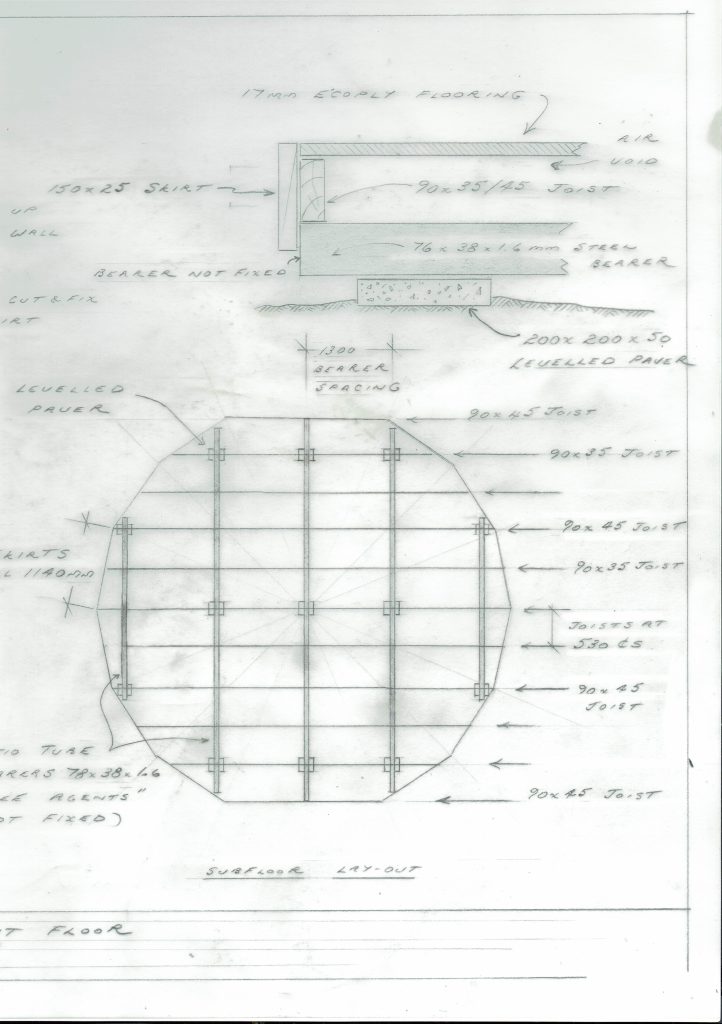 17mm ECOPLY FLOORING
AIR
VOID
150x25 SKIRT
90x35/45 JOIST
UP
WALL
76 x 38 x 1.6 mm STEEL
BEARER
BEARER NOT FIXED
CUT & FIX
200 x 200 x 50
LEVELLED PAVER
1300
BEARER
SPACING
LEVELLED
PAVER
90x45 JOIST
90x35 JOIST
90x45 JOIST
SKIRTS
1140mm
90x35 JOIST
JOISTS AT
530 CS
90x45
JOIST
TUBE
78x38x1.6
AGENTS"
FIXED)
90x45 JOIST
SUBFLOOR LAY-OUT
FLOOR